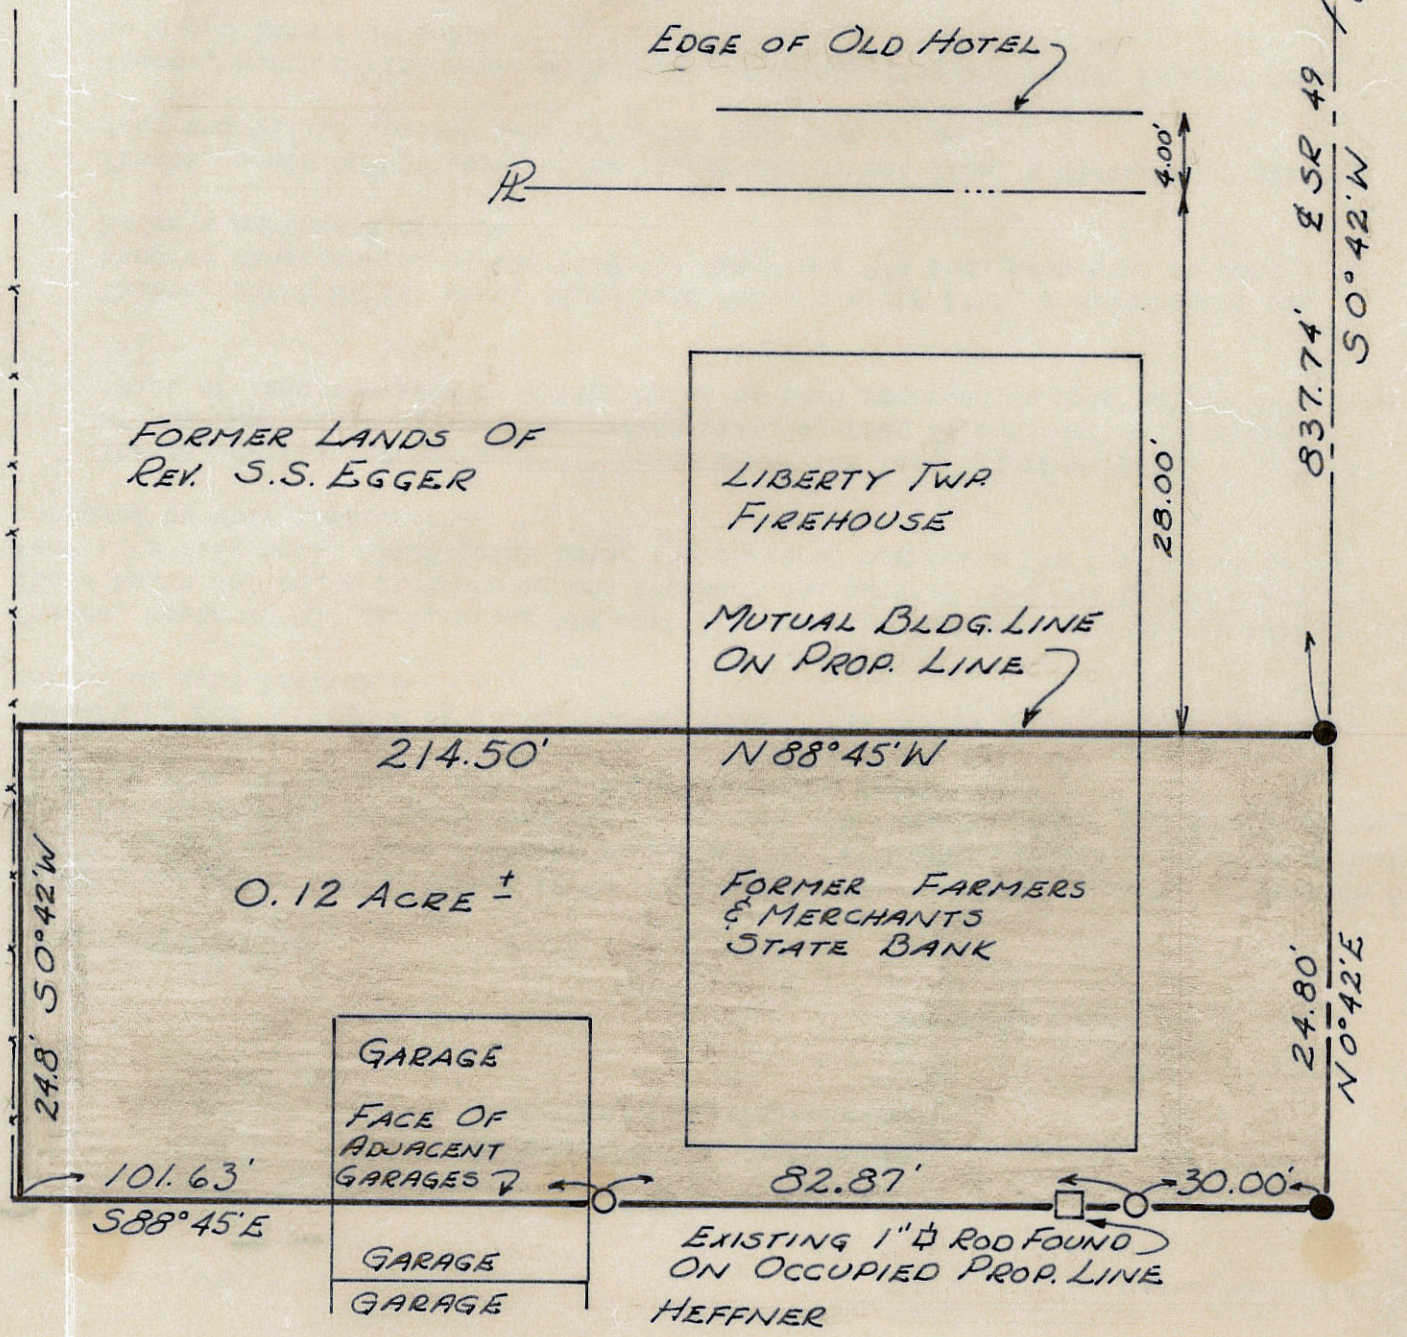 EDGE OF OLD HOTEL
4.00'
PL
837.74' ℄ SR 49
S 0° 42' W
FORMER LANDS OF
REV. S.S. EGGER
LIBERTY TWP.
FIREHOUSE
28.00'
MUTUAL BLDG. LINE
ON PROP. LINE
214.50'
N 88° 45' W
24.8' S 0° 42' W
0.12 ACRE ±
FORMER FARMERS
& MERCHANTS
STATE BANK
24.80'
N 0° 42' E
GARAGE
FACE OF
ADJACENT
GARAGES
101.63'
S 88° 45' E
82.87'
30.00'
EXISTING 1" ⌀ ROD FOUND
ON OCCUPIED PROP. LINE
GARAGE
GARAGE
HEFFNER